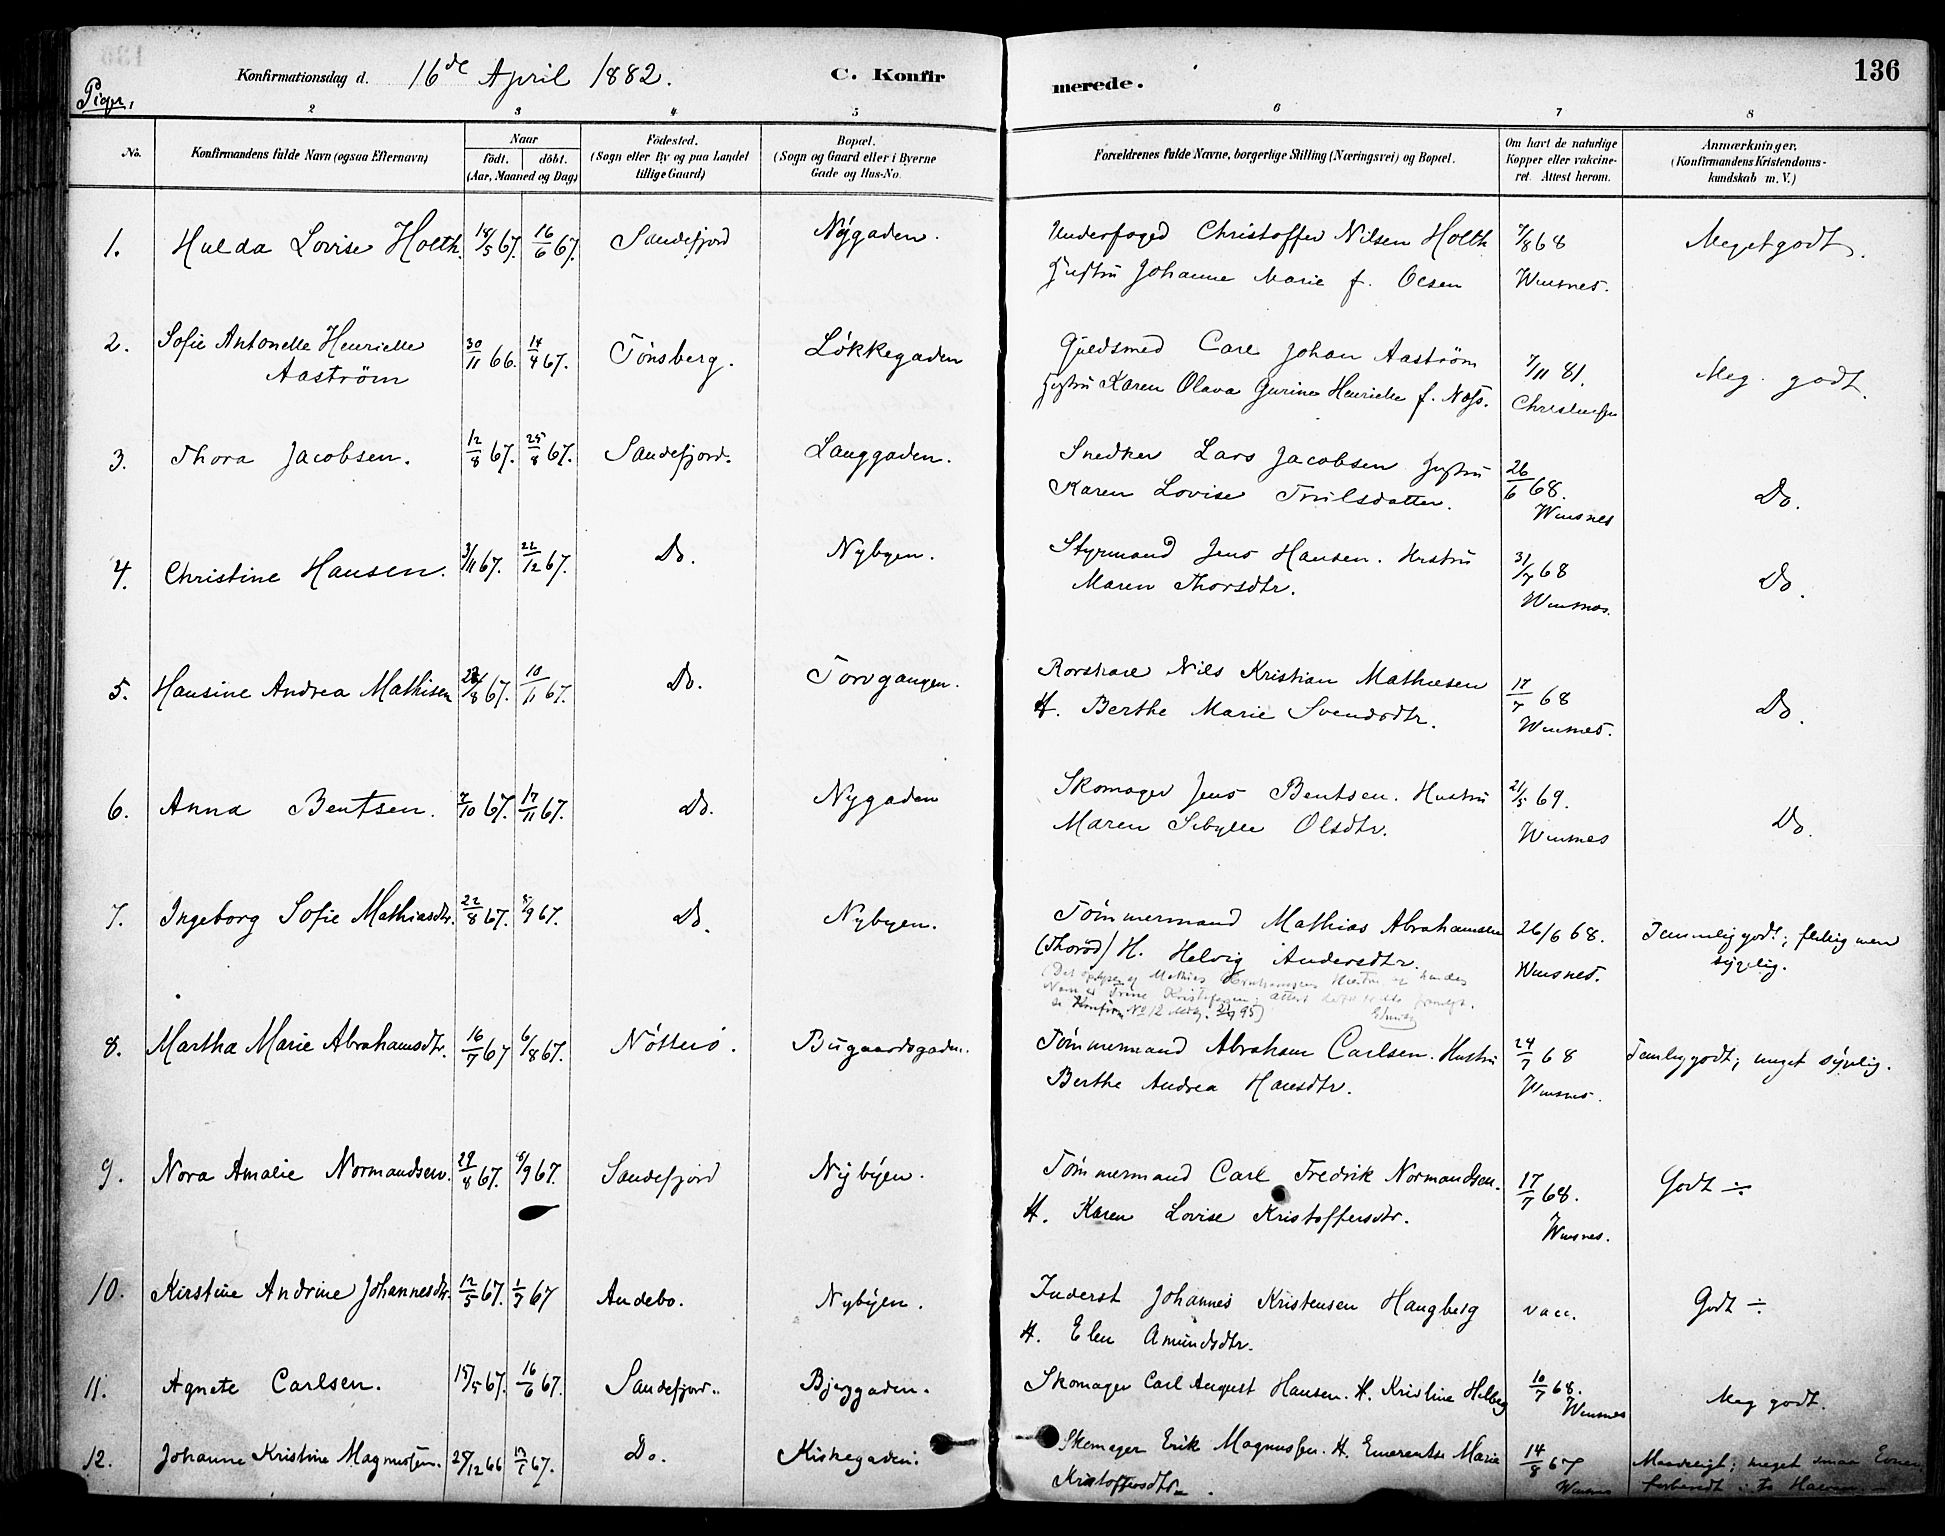 136
Piger,
Konfirmationsdag d. 16de April 1882.
C. Konfirmerede.
2 3 4 5 6 7 8
No.
Konfirmandens fulde Navn (ogsaa Efternavn)
Naar
födt. döbt.
(Aar, Maaned og Dag)
Födested.
(Sogn eller By og paa Landet
tillige Gaard)
Bopæl.
(Sogn og Gaard eller i Byerne
Gade og Hus-No.
Forældrenes fulde Navne, borgerlige Stilling (Næringsvei) og Bopæl.
Om havt de naturlige
Kopper eller vakcine-
ret. Attest herom.
Anmærkninger.
(Konfirmandens Kristendoms-
kundskab m. V.)
1. Hulda Lovise Holth. 18/5 67. 16/6 67. Sandefjord Nÿgaden. Underfoged Christoffer Nilsen Holth 7/8 68 Meget godt.
Hustru Johanne Marie f. Olsen Winsnes.
2. Sofie Antonette Henriette Aaström 30/11 66. 14/4 67. Tönsberg. Løkkegaden Guldsmed Carl Johan Aaström 7/11 81. Meg. godt.
Hustru Karen Olava Gurine Henriette f. Næss.
3. Thora Jacobsen. 12/8 67. 25/8 67. Sandefjord. Langgaden. Snedker Lars Jacobsen Hustru 26/6 68. Do.
Karen Lovise Trulsdatter. Winsnes
4. Christine Hansen. 3/11 67. 22/12 67. Do. Nybyen. Styrmand Jens Hansen. Hustru 31/7 68 Do.
Maren Thorsdtr. Winsnes.
5. Hansine Andrea Mathisen 24/8 67. 10/11 67. Do. Torvgangen. Rorskarl Nils Kristian Mathiesen 17/7 68 Do.
H. Berthe Marie Svendsdtr. Winsnes.
6. Anna Bentsen. 7/10 67. 17/11 67. Do. Nygaden Skomager Jens Bentsen. Hustru 21/5 69. Do.
Maren Sibylle Olsdtr. Winsnes
7. Ingeborg Sofie Mathiasdtr. 22/8 67. 8/9 67. Do. Nybyen. Tömmermand Mathias Abrahamsen 26/6 68. Temmelig godt; flittig men
(Thoröd) H. Helvig Andersdtr. Winsnes. sygelig.
(Det oplyses af Mathias Abrahamsens Hustru at hendes
Navn er Trine Kristofersen
se Konfirm No 12
8. Martha Marie Abrahamsdtr. 16/7 67 6/8 67. Nötterö. Bugaardsgaden. Tömmermand Abraham Carlsen. Hustru 24/7 68 Temlig godt; meget sÿgelig.
Berthe Andrea Hansdtr. Winsnes.
9. Nora Amalie Normandsen. 29/8 67. 8/9 67. Sandefjord Nÿbÿen. Tömmermand Carl Fredrik Normandsen. 17/7 68. Godt ÷
H. Karen Lovise Kristoffersdtr. Winsnes.
10. Kirstine Andrine Johannesdtr. 12/5 67. 1/7 67 Andebo. Nybÿen. Inderst Johannes Kristensen Haugberg vacc. Godt ÷
H. Elen Amundsdtr.
11. Agnete Carlsen. 15/5 67. 16/6 67. Sandefjord. Bjerggaden. Skomager Carl August Hansen. H. Kristine Helberg 10/7 68. Meg godt.
Winsnes
12. Johanne Kristine Magnussen. 25/12 66 17/1 67. Do. Kirkegaden. Skomager Erik Magnussen. H. Emerentse Marie 14/8 67 Maadeligt; meget smaa Evner,
Kristoffersdtr. Winsnes forberedt